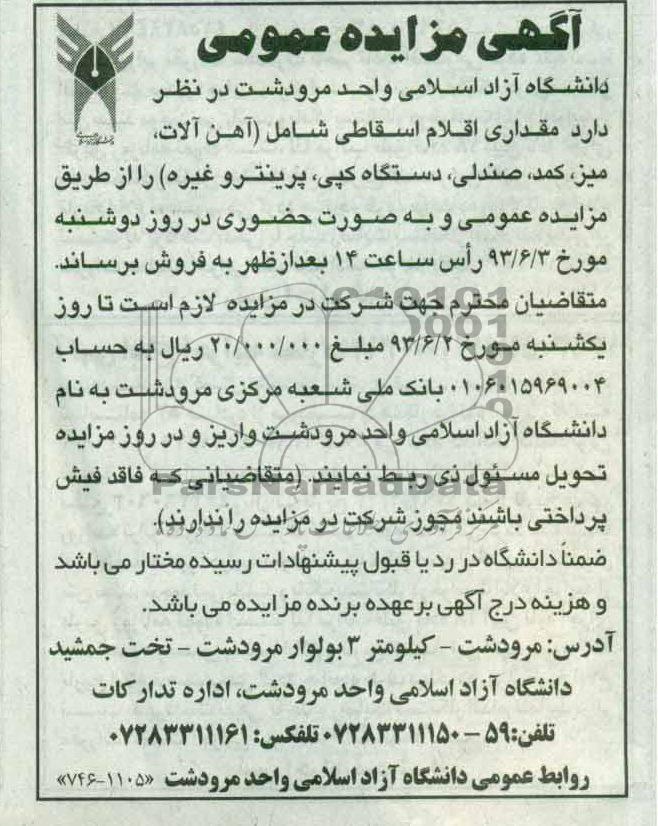 آگهی مزایده عمومی
دانشگاه آزاد اسلامی واحد مرودشت در نظر
دارد مقداری اقلام اسقاطی شامل (آهن آلات،
میز، کمد، صندلی، دستگاه کپی، پرینتر و غیره) را از طریق
مزایده عمومی و به صورت حضوری در روز دوشنبه
مورخ ۹۳/۶/۳ رأس ساعت ۱۴ بعدازظهر به فروش برساند.
متقاضیان محترم جهت شرکت در مزایده لازم است تا روز
یکشنبه مورخ ۹۳/۶/۲ مبلغ ۲۰/۰۰۰/۰۰۰ ریال به حساب
۰۱۰۶۰۱۵۹۶۹۰۰۴ بانک ملی شعبه مرکزی مرودشت به نام
دانشگاه آزاد اسلامی واحد مرودشت واریز و در روز مزایده
تحویل مسئول ذی ربط نمایند. (متقاضیانی که فاقد فیش
پرداختی باشند مجوز شرکت در مزایده را ندارند).
ضمناً دانشگاه در رد یا قبول پیشنهادات رسیده مختار می باشد
و هزینه درج آگهی برعهده برنده مزایده می باشد.
آدرس: مرودشت - کیلومتر ۳ بولوار مرودشت - تخت جمشید
دانشگاه آزاد اسلامی واحد مرودشت، اداره تدارکات
تلفن: ۵۹ - ۰۷۲۸۳۳۱۱۱۵۰ تلفکس: ۰۷۲۸۳۳۱۱۱۶۱
روابط عمومی دانشگاه آزاد اسلامی واحد مرودشت «۱۱۰۵-۷۴۶»
ParsNamadData